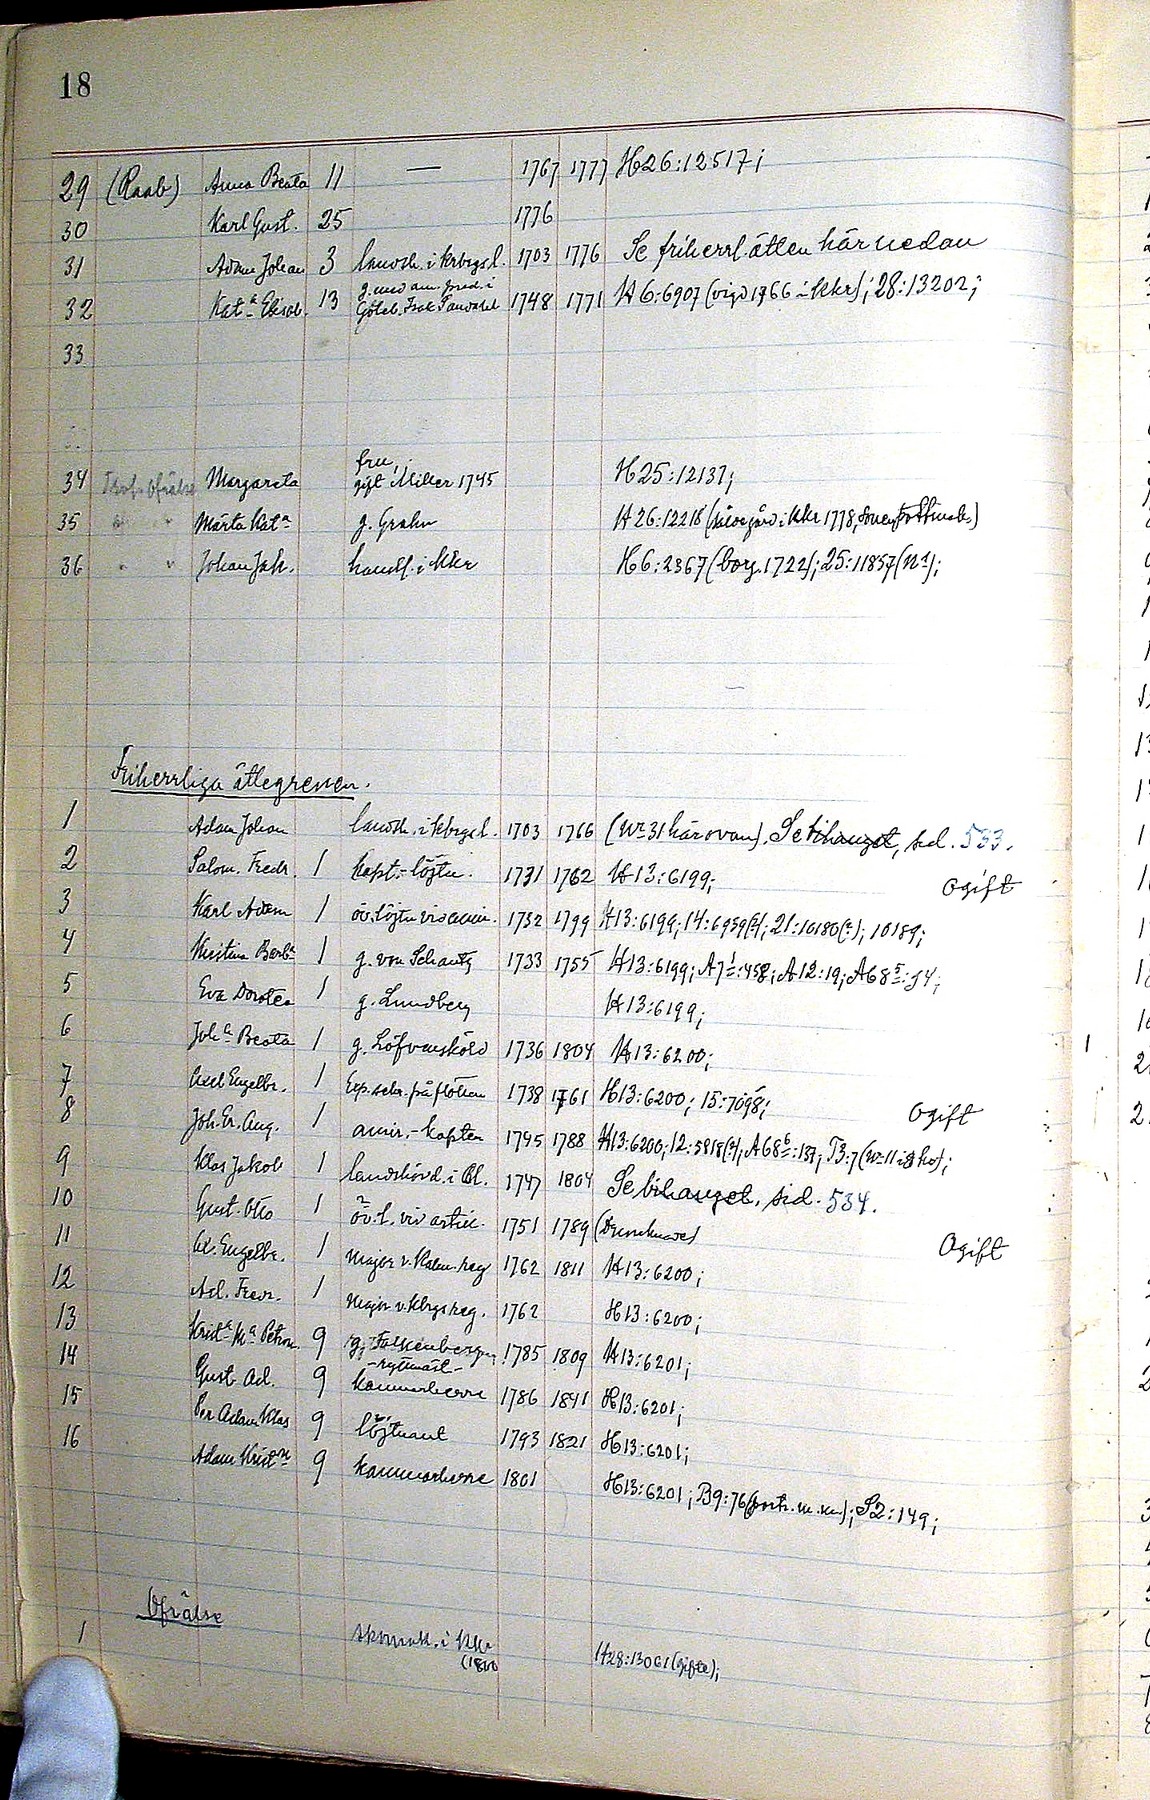 18
29 (Raab) Anna Beata 11 — 1767 1777 H26:12517;
30 Karl Gust. 25 1776
31 Adam Johan 3 landsh. i krbrgs l. 1703 1776 Se friherrl. ätten här nedan
32 Kat:a Elisab. 13 g. med am. pred. i Göteb. Isak 1748 1771 H6:6907 (vigd 1766 i Kkr); 28:13202;
33
34 Ofrälse Margareta fru, gift Miller 1745 H25:12137;
35 " Märta Kat:a g. Grahn H26:12218 (i Kkr 1778,
36 " " Johan Jak. handl. i Kkr H6:2367 (borg. 1722); 25:11857 (n:1);
Friherrliga ättegrenen.
1 Adam Johan landsh. i krbrgs l. 1703 1766 (Nr 31 här ovan). Se bihanget, sid. 533.
2 Salom. Fredr. 1 kapt.-löjtn. 1731 1762 H13:6199; Ogift
3 Karl Adam 1 öv.löjtn vid amir. 1732 1799 H13:6199; 14:6959(?); 21:10180(?); 10189;
4 Kristina Barb:a 1 g. von Schantz 1733 1755 H13:6199; A7:1:458; A12:19; A68:5:54;
5 Eva Dorotea 1 g. Lundberg H13:6199;
6 Joh:a Beata 1 g. Löfvensköld 1736 1804 H13:6200;
7 Axel Engelbr. 1 Exp.sekr. på flottan 1738 1761 H13:6200; 15:7098; Ogift
8 Joh. Er. Aug. 1 amir.-kapten 1745 1788 H13:6200; 12:5818(?); A68:6:137; T3:7 (Nr 11
9 Klas Jakob 1 landshövd. i Öl. 1747 1804 Se bihanget, sid. 534.
10 Gust. Otto 1 öv.l. vid artill. 1751 1789 (Drunknade)
11 Ax. Engelbr. 1 Major v. Kalm. reg 1762 1811 H13:6200; Ogift
12 Ad. Fredr. 1 Major v. Kbrgs reg. 1762 H13:6200;
13 Krist:a M:a Petron. 9 g. Falkenberg 1785 1809 H13:6201;
14 Gust. Ad. 9 -ryttmäst- kammarherre 1786 1841 H13:6201;
15 Per Adam Klas 9 löjtnant 1793 1821 H13:6201;
16 Adam Krist:n 9 kammarherre 1801 H13:6201; B9:76 (portr. m.m.); S2:149;
Ofrälse
1 skomak. i Kkr H28:13061 (gifte);